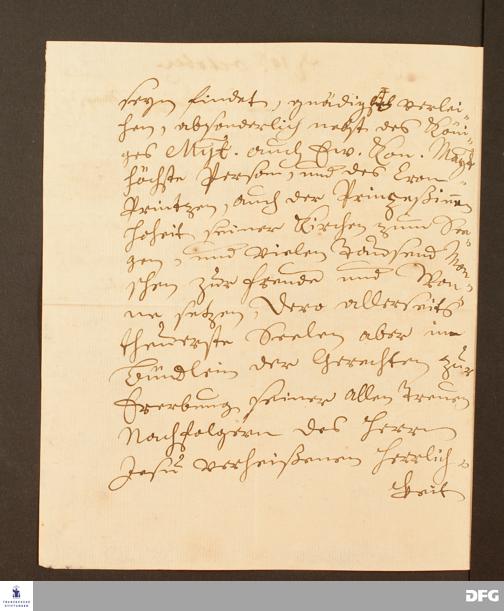 seyn findet, gnädigst verlei-
hen, absonderlich nebst des Köni-
ges Majt. auch Ew. Kön. Majt.
höchste Person, und des Cron-
Printzen, auch der Princeßinen
Hoheit seiner Kirchen zum See-
gen, und vielen Tausend Men-
schen zur Freude und Won-
ne setzen, Dero allerseits
theuerste Seelen aber im
Bündlein der Gerechten zur
Ererbung seiner allen Treuen
Nachfolgern des Herrn
Jesu verheißenen Herrlich-
keit
FRANCKESCHE STIFTUNGEN
DFG